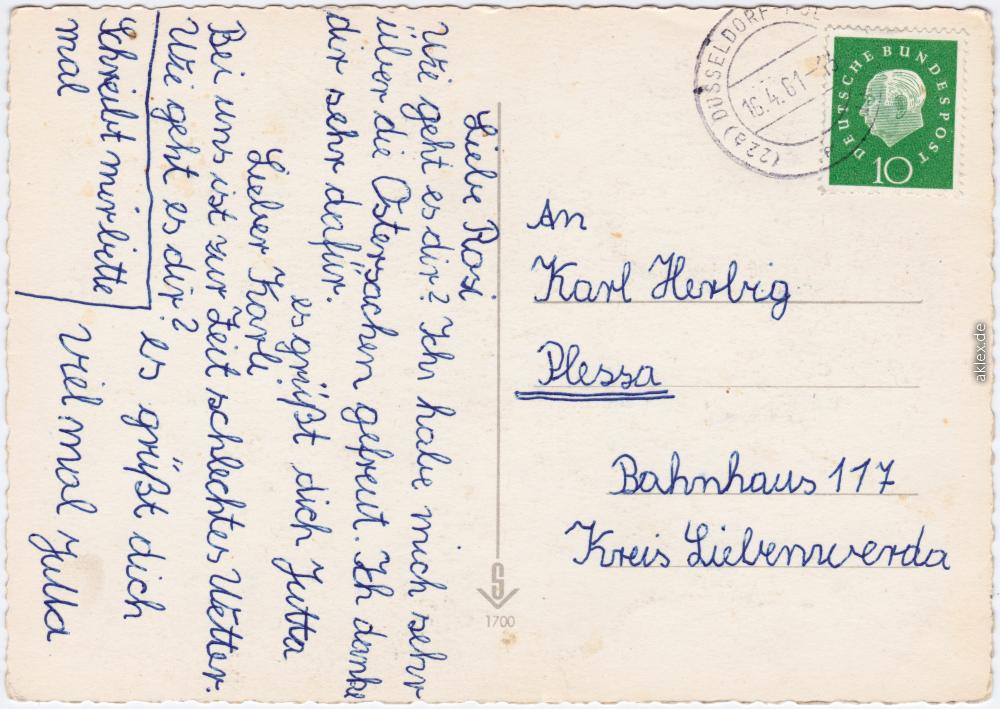 Liebe Rosi
Wie geht es dir? Ich habe mich sehr
über die Ostersachen gefreut. Ich danke
dir sehr dafür.
es grüßt dich Jutta
Lieber Karli
Bei uns ist zur Zeit schlechtes Wetter.
Wie geht es dir?
es grüßt dich
viel mal Jutta
Schreibt mir bitte
mal
(22a) DÜSSELDORF
16.4.61
DEUTSCHE BUNDESPOST
10
An
Karl Herbig
Plessa
Bahnhaus 117
Kreis Liebenwerda
S
1700
aklex.de